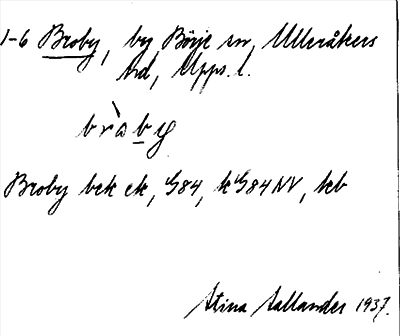 1-6 Broby, by, Börje sn, Ulleråkers
hd, Upps. l.
bròby
Broby bek ek, G84, kG84NV, kb
Stina Sallander 1937.